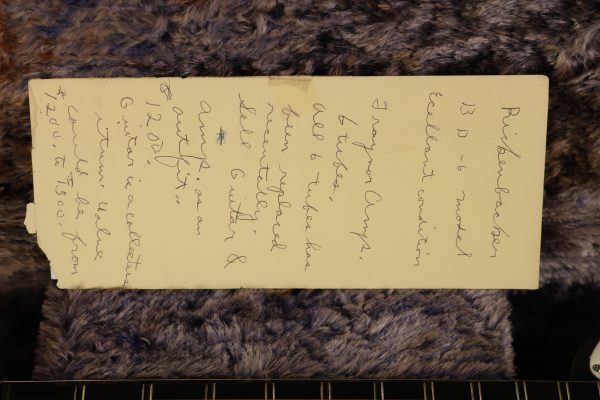 Rickenbacker
B D-6 model
Ecellant condition
Traynor Amp.
6 tubes.
all 6 tubes has
been replaced
recentally.
Sell Guitar &
amp. as an
outfit..
1200.
Guitar is a collective
item. Value
could be from
$1200. to 1500.